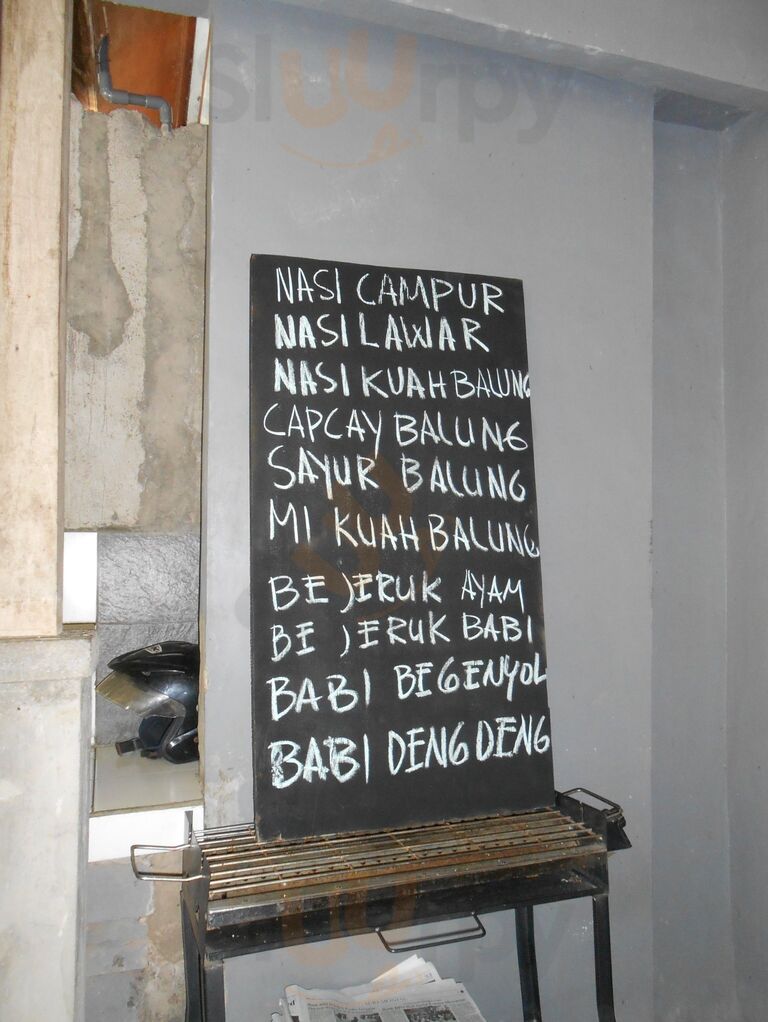 Sluurpy
NASI CAMPUR
NASI LAWAR
NASI KUAH BALUNG
CAPCAY BALUNG
SAYUR BALUNG
MI KUAH BALUNG
BE JERUK AYAM
BE JERUK BABI
BABI BEGENYOL
BABI DENG DENG